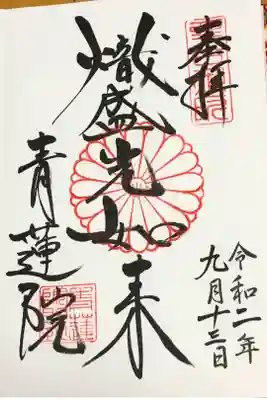 奉拝
熾盛光如来
青蓮院
令和二年
九月十三日